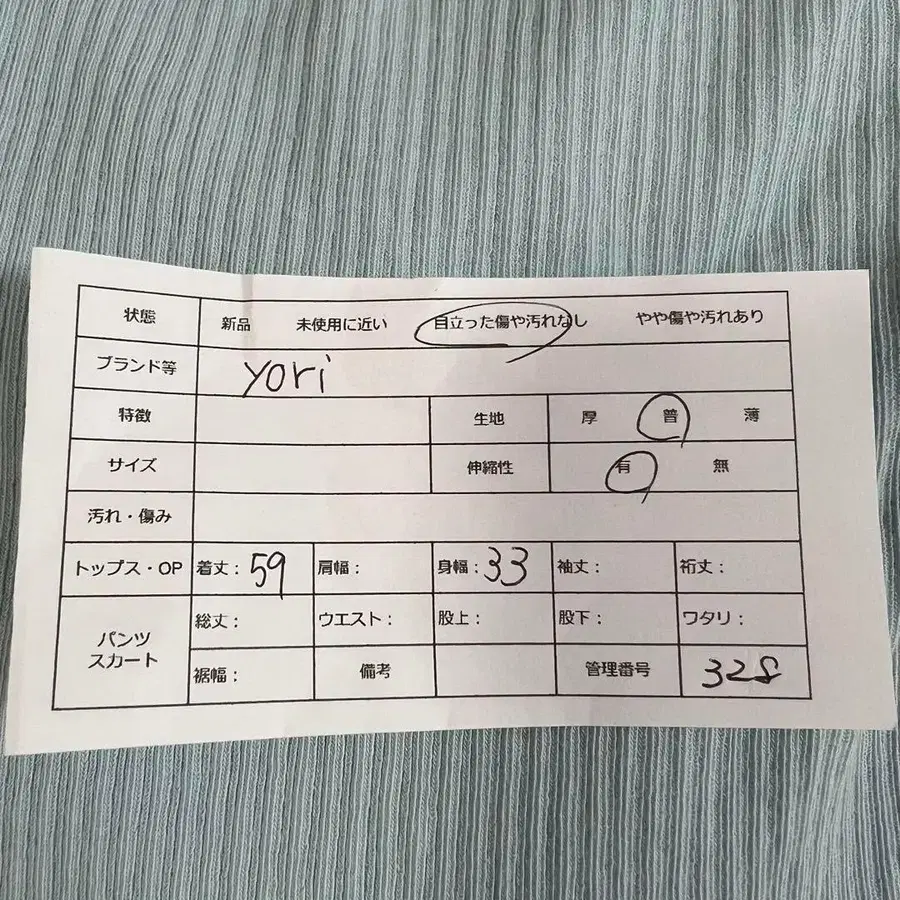 状態 新品 未使用に近い 目立った傷や汚れなし やや傷や汚れあり
ブランド等 yori
特徴 生地 厚 普 薄
サイズ 伸縮性 有 無
汚れ・傷み
トップス・OP 着丈：59 肩幅： 身幅：33 袖丈： 裄丈：
パンツ スカート 総丈： ウエスト： 股上： 股下： ワタリ：
裾幅： 備考 管理番号 328